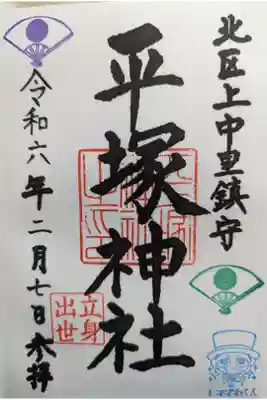 北区上中里鎮守
平塚神社
令和六年二月七日参拝
立身
出世